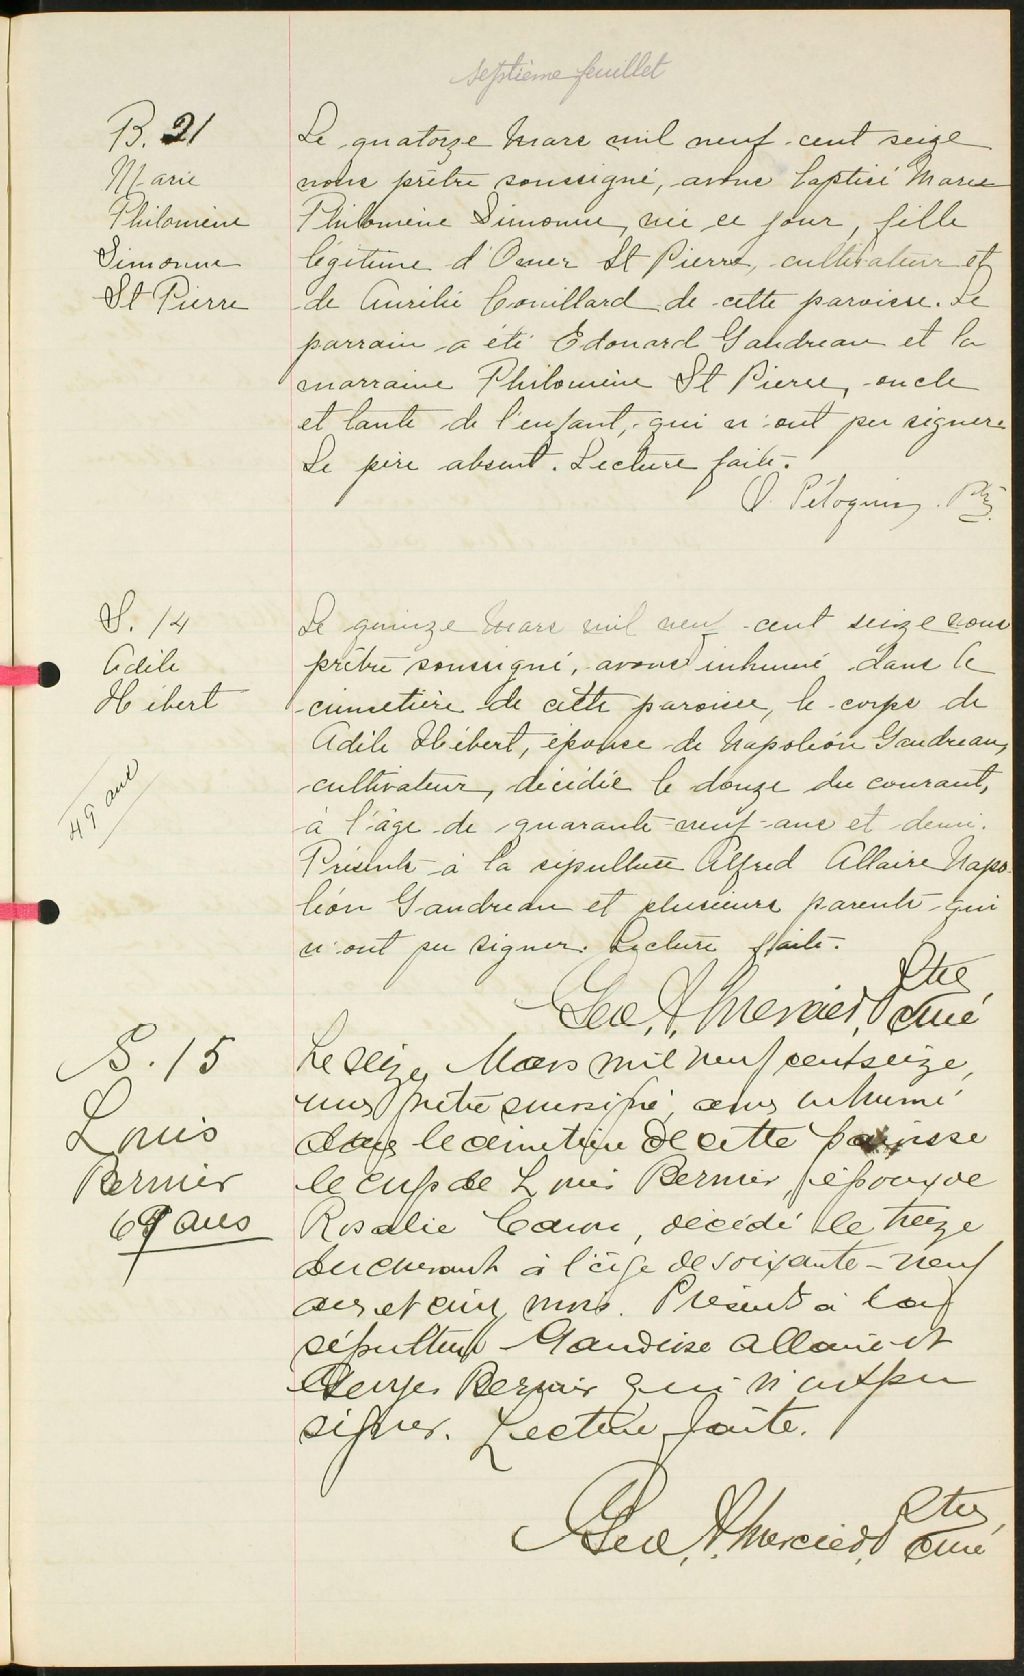 septième feuillet
B. 21
Marie
Philomène
Simonne
St Pierre
Le quatorze Mars mil neuf cent seize
nous prêtre soussigné, avons baptisé Marie
Philomène Simonne, née ce jour, fille
légitime d'Omer St Pierre, cultivateur et
de Aurélie Couillard de cette paroisse. Le
parrain a été Edouard Gaudreau et la
marraine Philomène St Pierre, oncle
et tante de l'enfant, qui n'ont pu signer.
Le père absent. Lecture faite.
O. Péloquin, Ptre.
S. 14
Adèle
Hébert
49 ans
Le quinze Mars mil neuf cent seize nous
prêtre soussigné, avons inhumé dans le
cimetière de cette paroisse, le corps de
Adèle Hébert, épouse de Napoléon Gaudreau,
cultivateur, décédée le douze du courant,
à l'âge de quarante-neuf ans et demi.
Présents à la sépulture Alfred Allaire Napo-
léon Gaudreau et plusieurs parents qui
n'ont pu signer. Lecture faite.
Geo. A. Mercier, Ptre
Curé
S. 15
Louis
Bernier
69 ans
Le seize Mars mil neuf cent seize,
nous prêtre soussigné, avons inhumé
dans le cimetière de cette paroisse
le corps de Louis Bernier, époux de
Rosalie Caron, décédé le treize
du courant à l'âge de soixante-neuf
ans et cinq mois. Présents à la
sépulture Gaudiose Allaire et
Georges Bernier qui n'ont pu
signer. Lecture faite.
Geo. A. Mercier, Ptre,
Curé